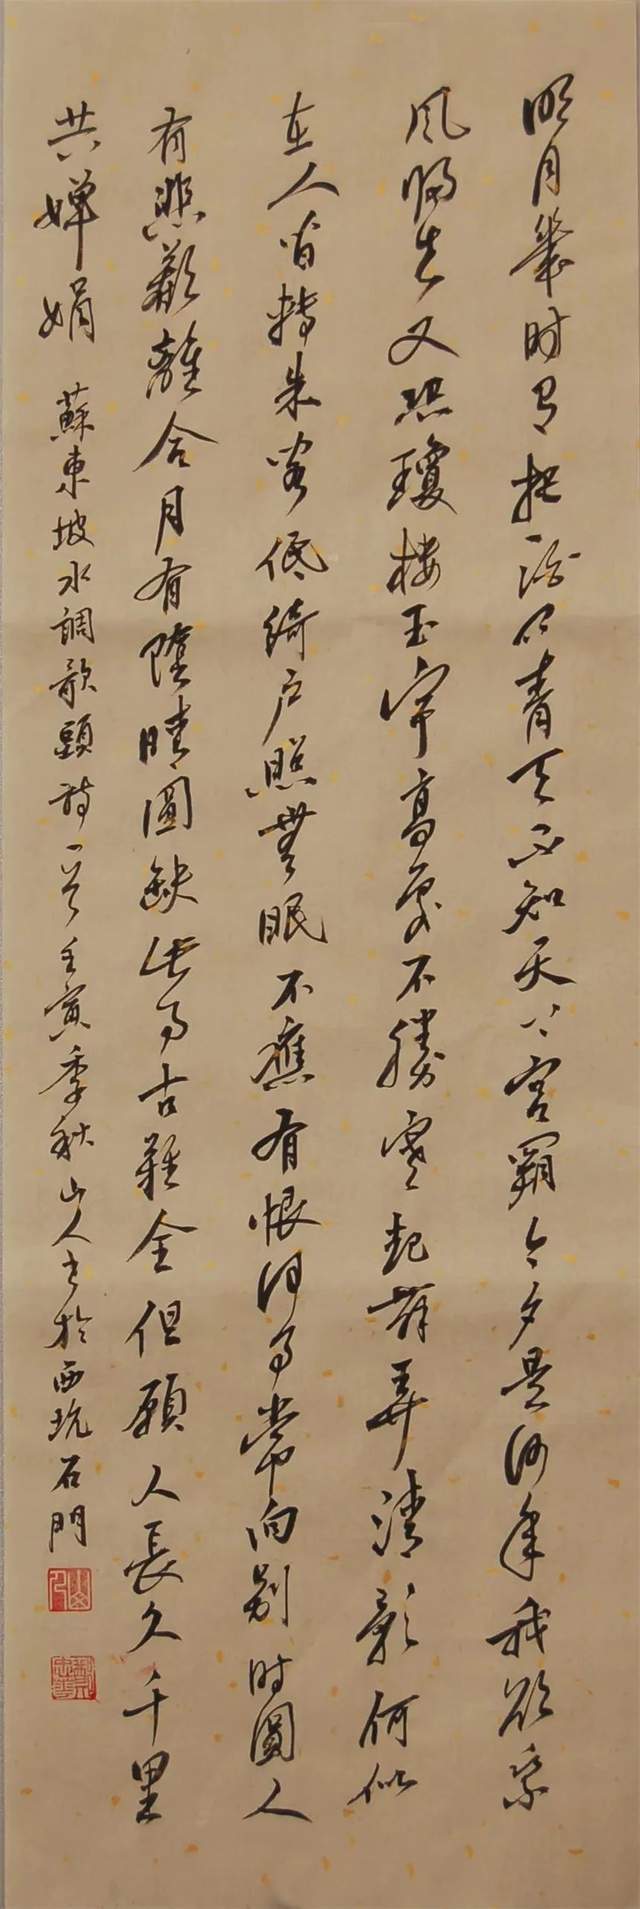 明月幾时有把酒问青天不知天上宫阙今夕是何年我欲乘
风归去又恐瓊楼玉宇高處不勝寒起舞弄清影何似
在人间转朱阁低绮户照無眠不應有恨何事常向别时圓人
有悲歡離合月有陰晴圓缺此事古難全但願人長久千里
共婵娟 蘇東坡水調歌頭詩一首壬寅季秋山人书於西坑石門
山人